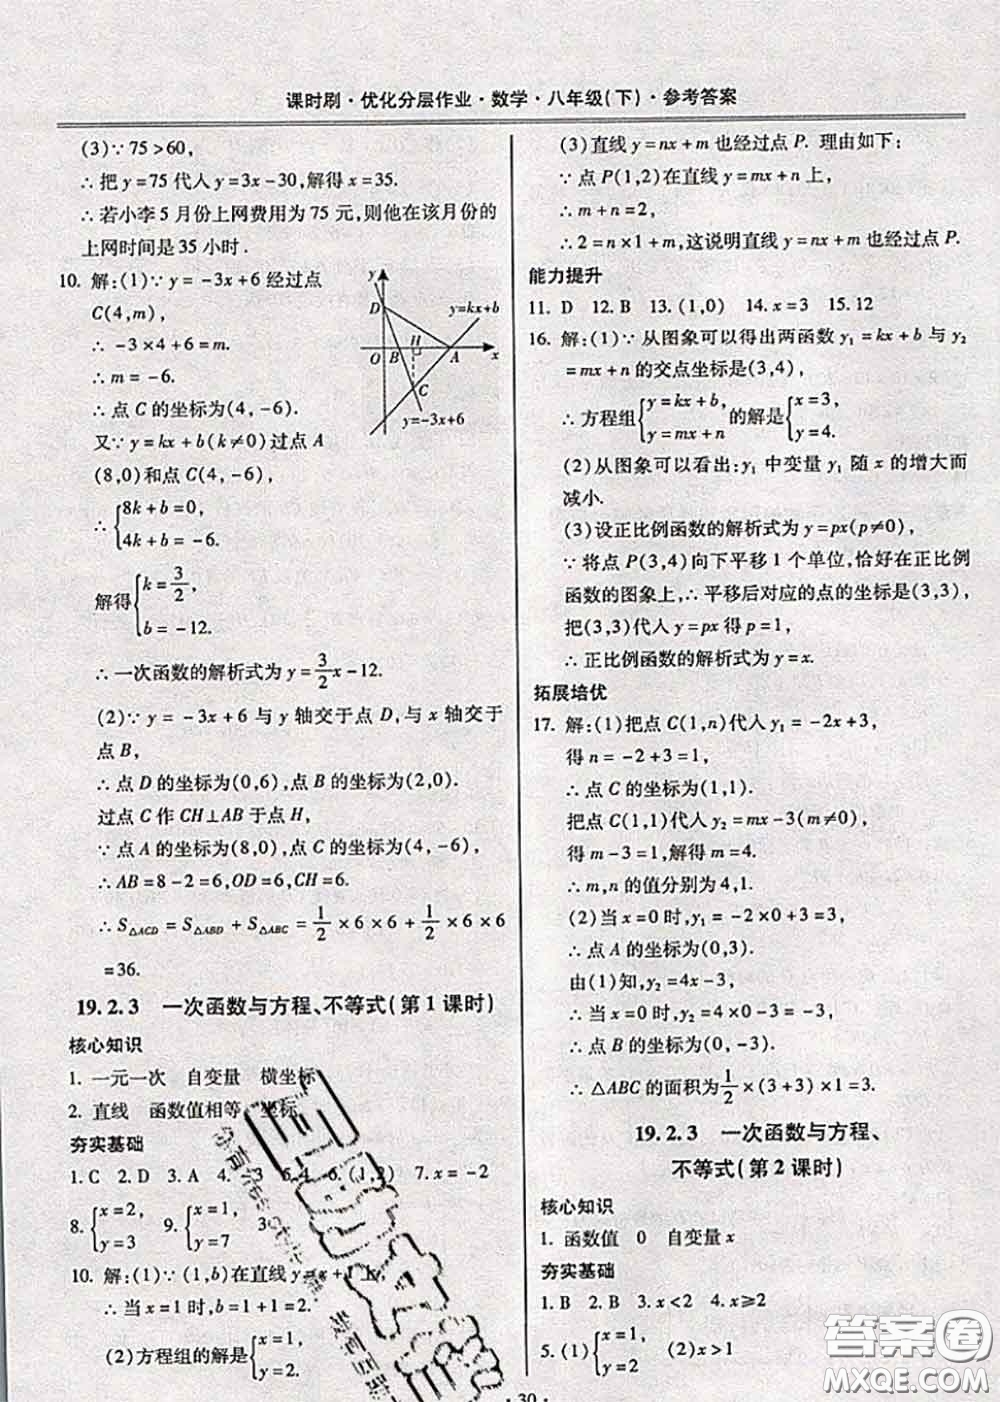 课时刷·优化分层作业·数学·八年级(下)·参考答案
(3)∵75>60,
∴把y=75代入y=3x-30,解得x=35.
∴若小李5月份上网费用为75元,则他在该月份的
上网时间是35小时.
10. 解:(1)∵y=-3x+6经过点
C(4,m),
∴-3×4+6=m.
∴m=-6.
∴点C的坐标为(4,-6).
又∵y=kx+b(k≠0)过点A
(8,0)和点C(4,-6),
∴{8k+b=0,
4k+b=-6.
解得{k=3/2,
b=-12.
∴一次函数的解析式为y=3/2x-12.
y
D
y=kx+b
H
O B A x
C
y=-3x+6
(2)∵y=-3x+6与y轴交于点D,与x轴交于
点B,
∴点D的坐标为(0,6),点B的坐标为(2,0).
过点C作CH⊥AB于点H,
∵点A的坐标为(8,0),点C的坐标为(4,-6),
∴AB=8-2=6,OD=6,CH=6.
∴S△ACD=S△ABD+S△ABC=1/2×6×6+1/2×6×6
=36.
19.2.3 一次函数与方程、不等式(第1课时)
核心知识
1. 一元一次 自变量 横坐标
2. 直线 函数值相等 坐标
夯实基础
1.C 2.D 3.A 4. 5. 6.(1,2) 7.x=-2
8.{x=2,
y=3
9.{x=1,
y=7
10. 解:(1)∵(1,b)在直线y=x+1上,
∴当x=1时,b=1+1=2.
(2)方程组的解是{x=1,
y=2.
(3)直线y=nx+m也经过点P. 理由如下:
∵点P(1,2)在直线y=mx+n上,
∴m+n=2,
∴2=n×1+m,这说明直线y=nx+m也经过点P.
能力提升
11. D 12. B 13.(1,0) 14.x=3 15.12
16. 解:(1)∵从图象可以得出两函数y₁=kx+b与y₂
=mx+n的交点坐标是(3,4),
∴方程组{y=kx+b,
y=mx+n
的解是{x=3,
y=4.
(2)从图象可以看出:y₁中变量y₁随x的增大而
减小.
(3)设正比例函数的解析式为y=px(p≠0),
∵将点P(3,4)向下平移1个单位,恰好在正比例
函数的图象上,∴平移后对应的点的坐标是(3,3),
把(3,3)代入y=px得p=1,
∴正比例函数的解析式为y=x.
拓展培优
17. 解:(1)把点C(1,n)代入y₁=-2x+3,
得n=-2+3=1,
∴点C的坐标为(1,1).
把点C(1,1)代入y₂=mx-3(m≠0),
得m-3=1,解得m=4.
∴m,n的值分别为4,1.
(2)当x=0时,y₁=-2×0+3=3,
∴点A的坐标为(0,3).
由(1)知,y₂=4x-3,
当x=0时,y₂=4×0-3=-3,
∴点B的坐标为(0,-3).
∴△ABC的面积为1/2×(3+3)×1=3.
19.2.3 一次函数与方程、
不等式(第2课时)
核心知识
1. 函数值 0 自变量x
夯实基础
1.B 2.B 3.x<2 4.x≥2
5.(1){x=1,
y=2
(2)x>1
·30·
答案卷
MXQE.COM